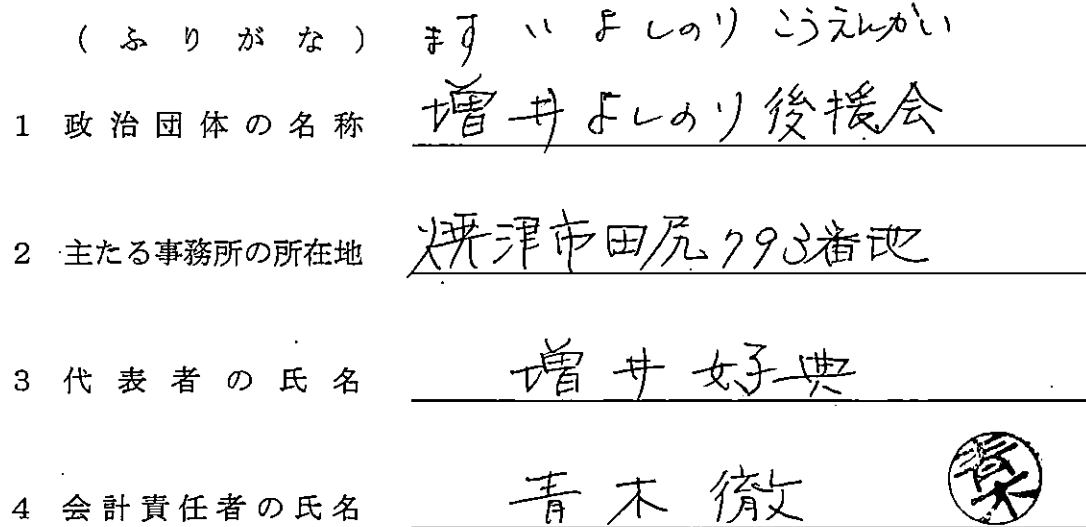 (ふりがな) ますいよしのりこうえんかい
1 政治団体の名称 増井よしのり後援会
2 主たる事務所の所在地 焼津市田尻793番地
3 代表者の氏名 増井好典
4 会計責任者の氏名 青木徹 青木